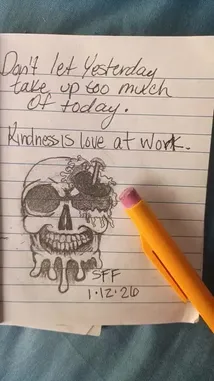 Don't let Yesterday
take up too much
Of today.
Kindness is love at work.
SFF
1·12·26